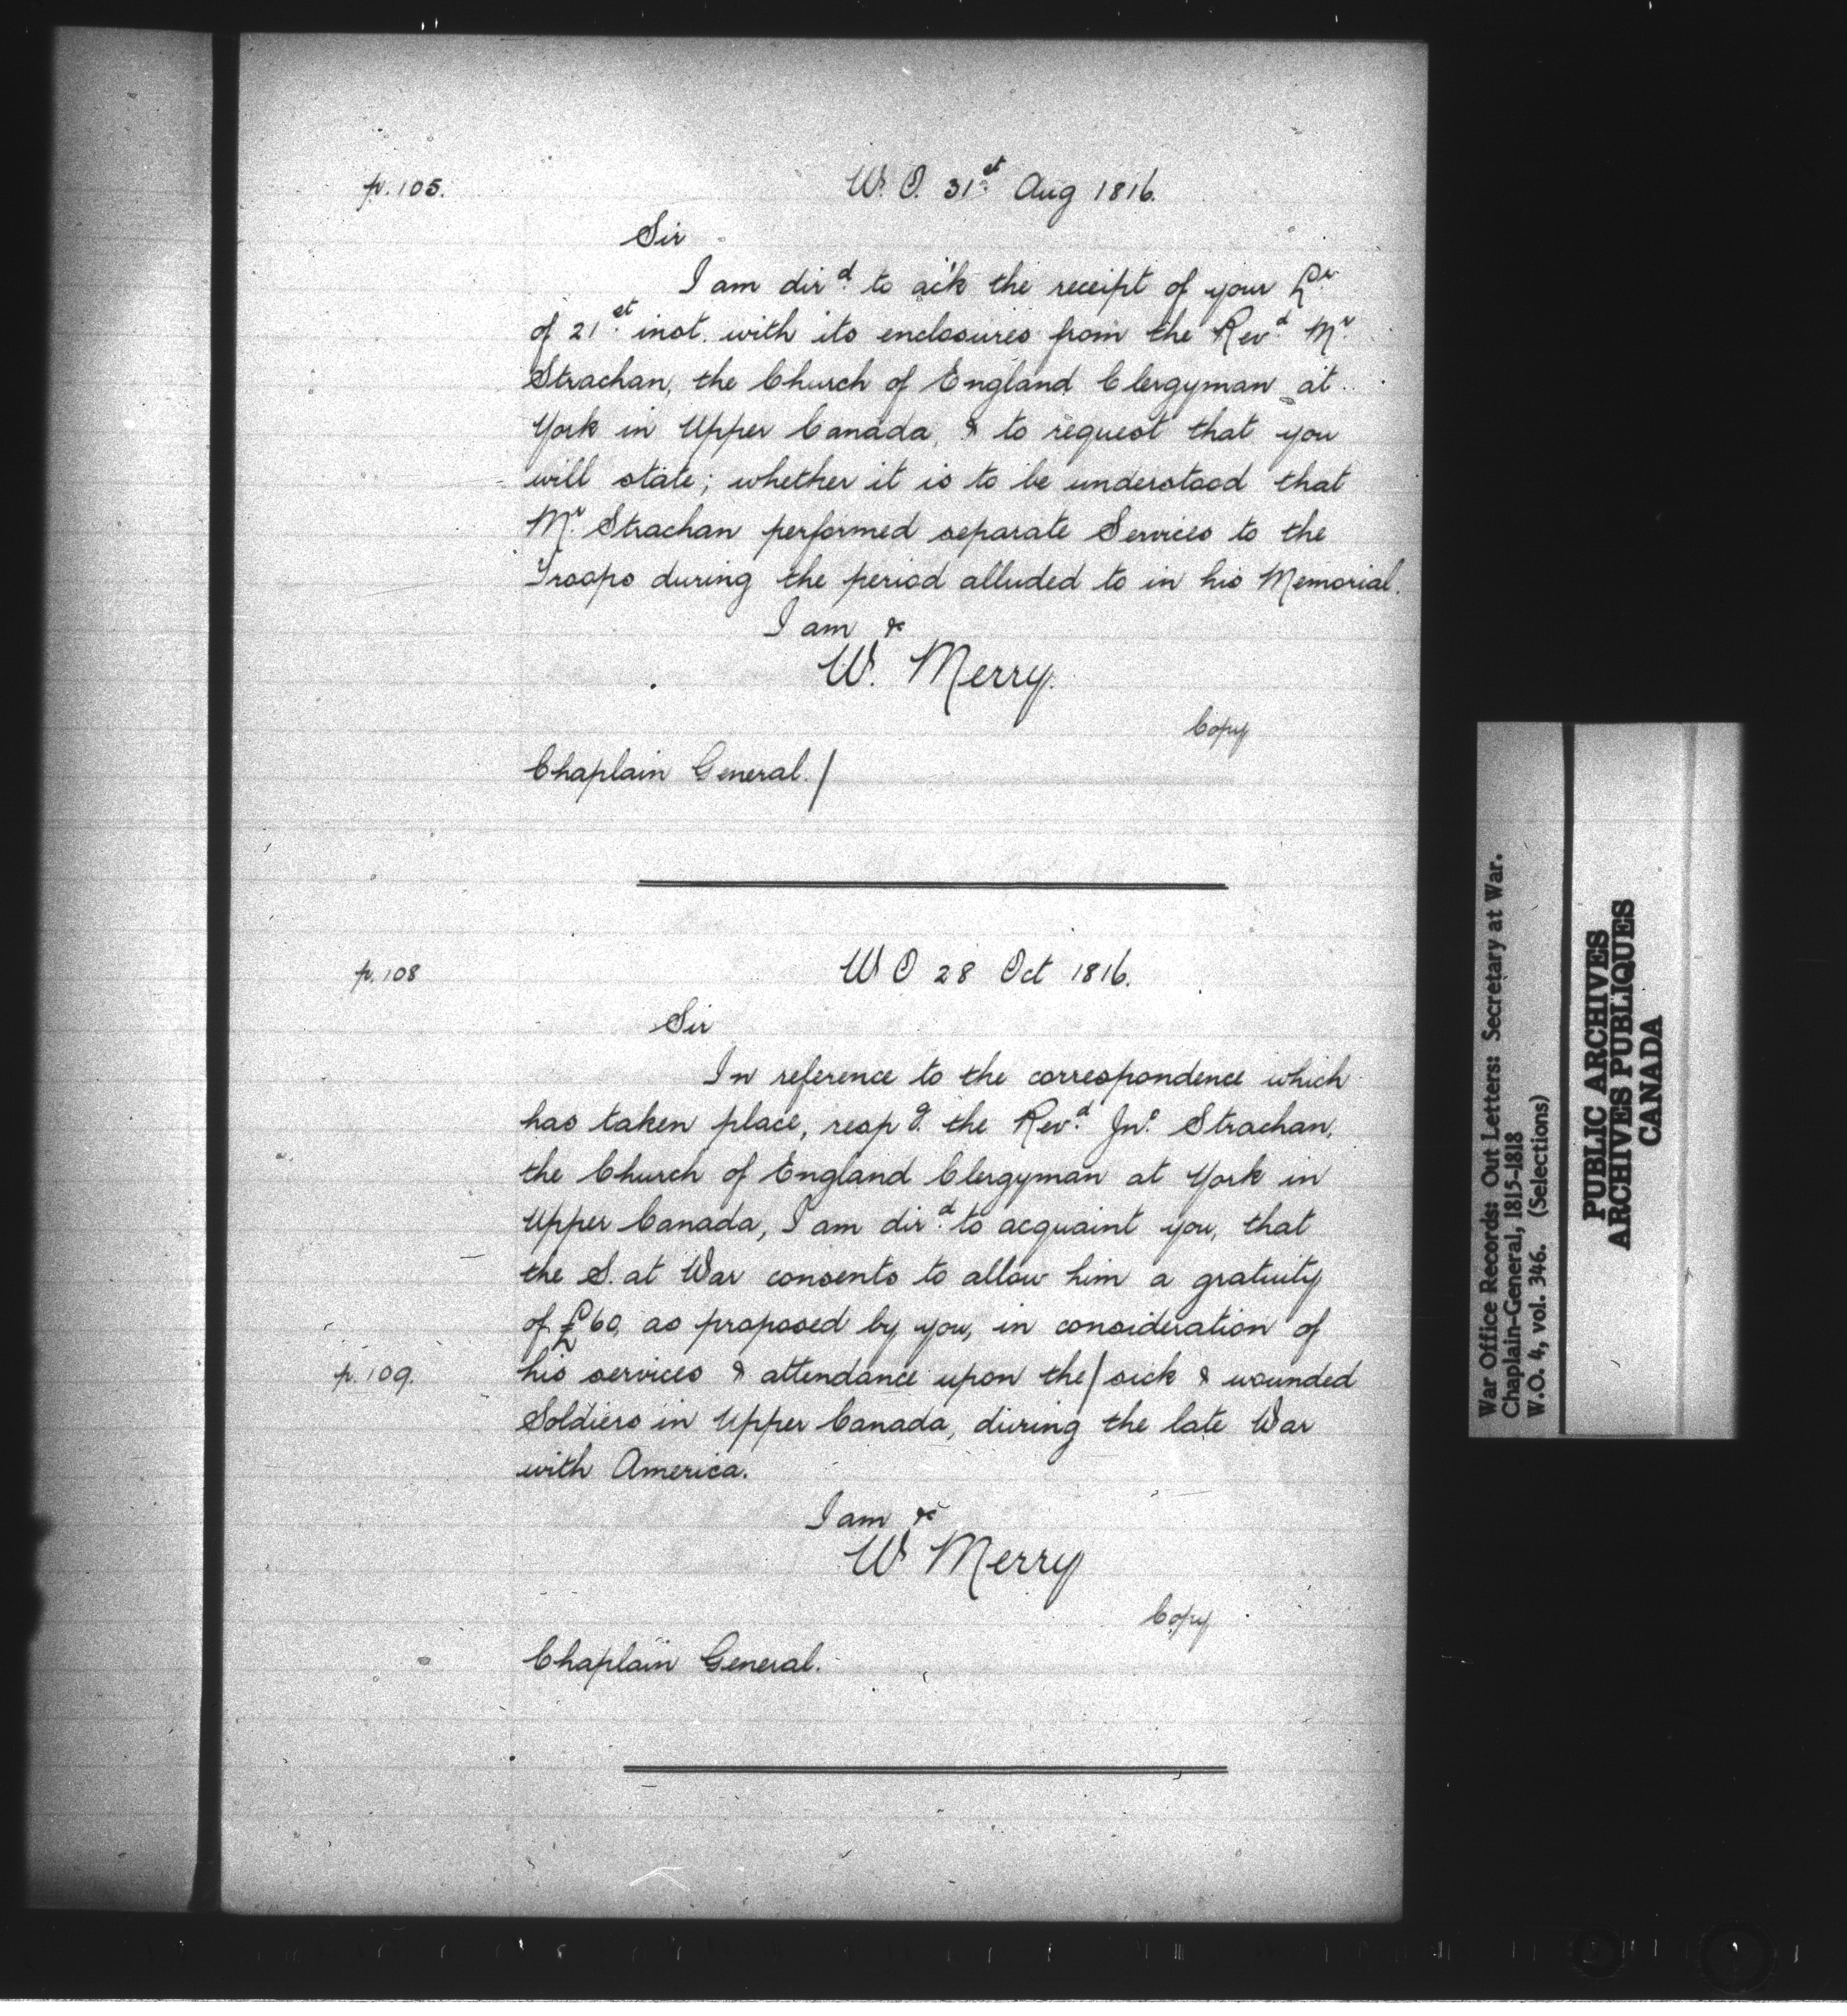 p. 105.
W. O. 31st Aug 1816.
Sir
I am dird. to ack the receipt of your Lr.
of 21st inst. with its enclosures from the Revd. Mr.
Strachan, the Church of England Clergyman at
York in Upper Canada, & to request that you
will state; whether it is to be understood that
Mr. Strachan performed separate Services to the
Troops during the period alluded to in his Memorial.
I am &c
W. Merry.
Copy
Chaplain General./
p. 108
W O 28 Oct 1816.
Sir
In reference to the correspondence which
has taken place, respg. the Revd. Jno. Strachan,
the Church of England Clergyman at York in
Upper Canada, I am dird. to acquaint you, that
the S. at War consents to allow him a gratuity
of £60, as proposed by you, in consideration of
p. 109.
his services & attendance upon the/sick & wounded
Soldiers in Upper Canada, during the late War
with America.
I am &c
W Merry
Copy
Chaplain General.
War Office Records: Out Letters: Secretary at War.
Chaplain-General, 1815-1818
W.O. 4, vol. 346. (Selections)
PUBLIC ARCHIVES
ARCHIVES PUBLIQUES
CANADA